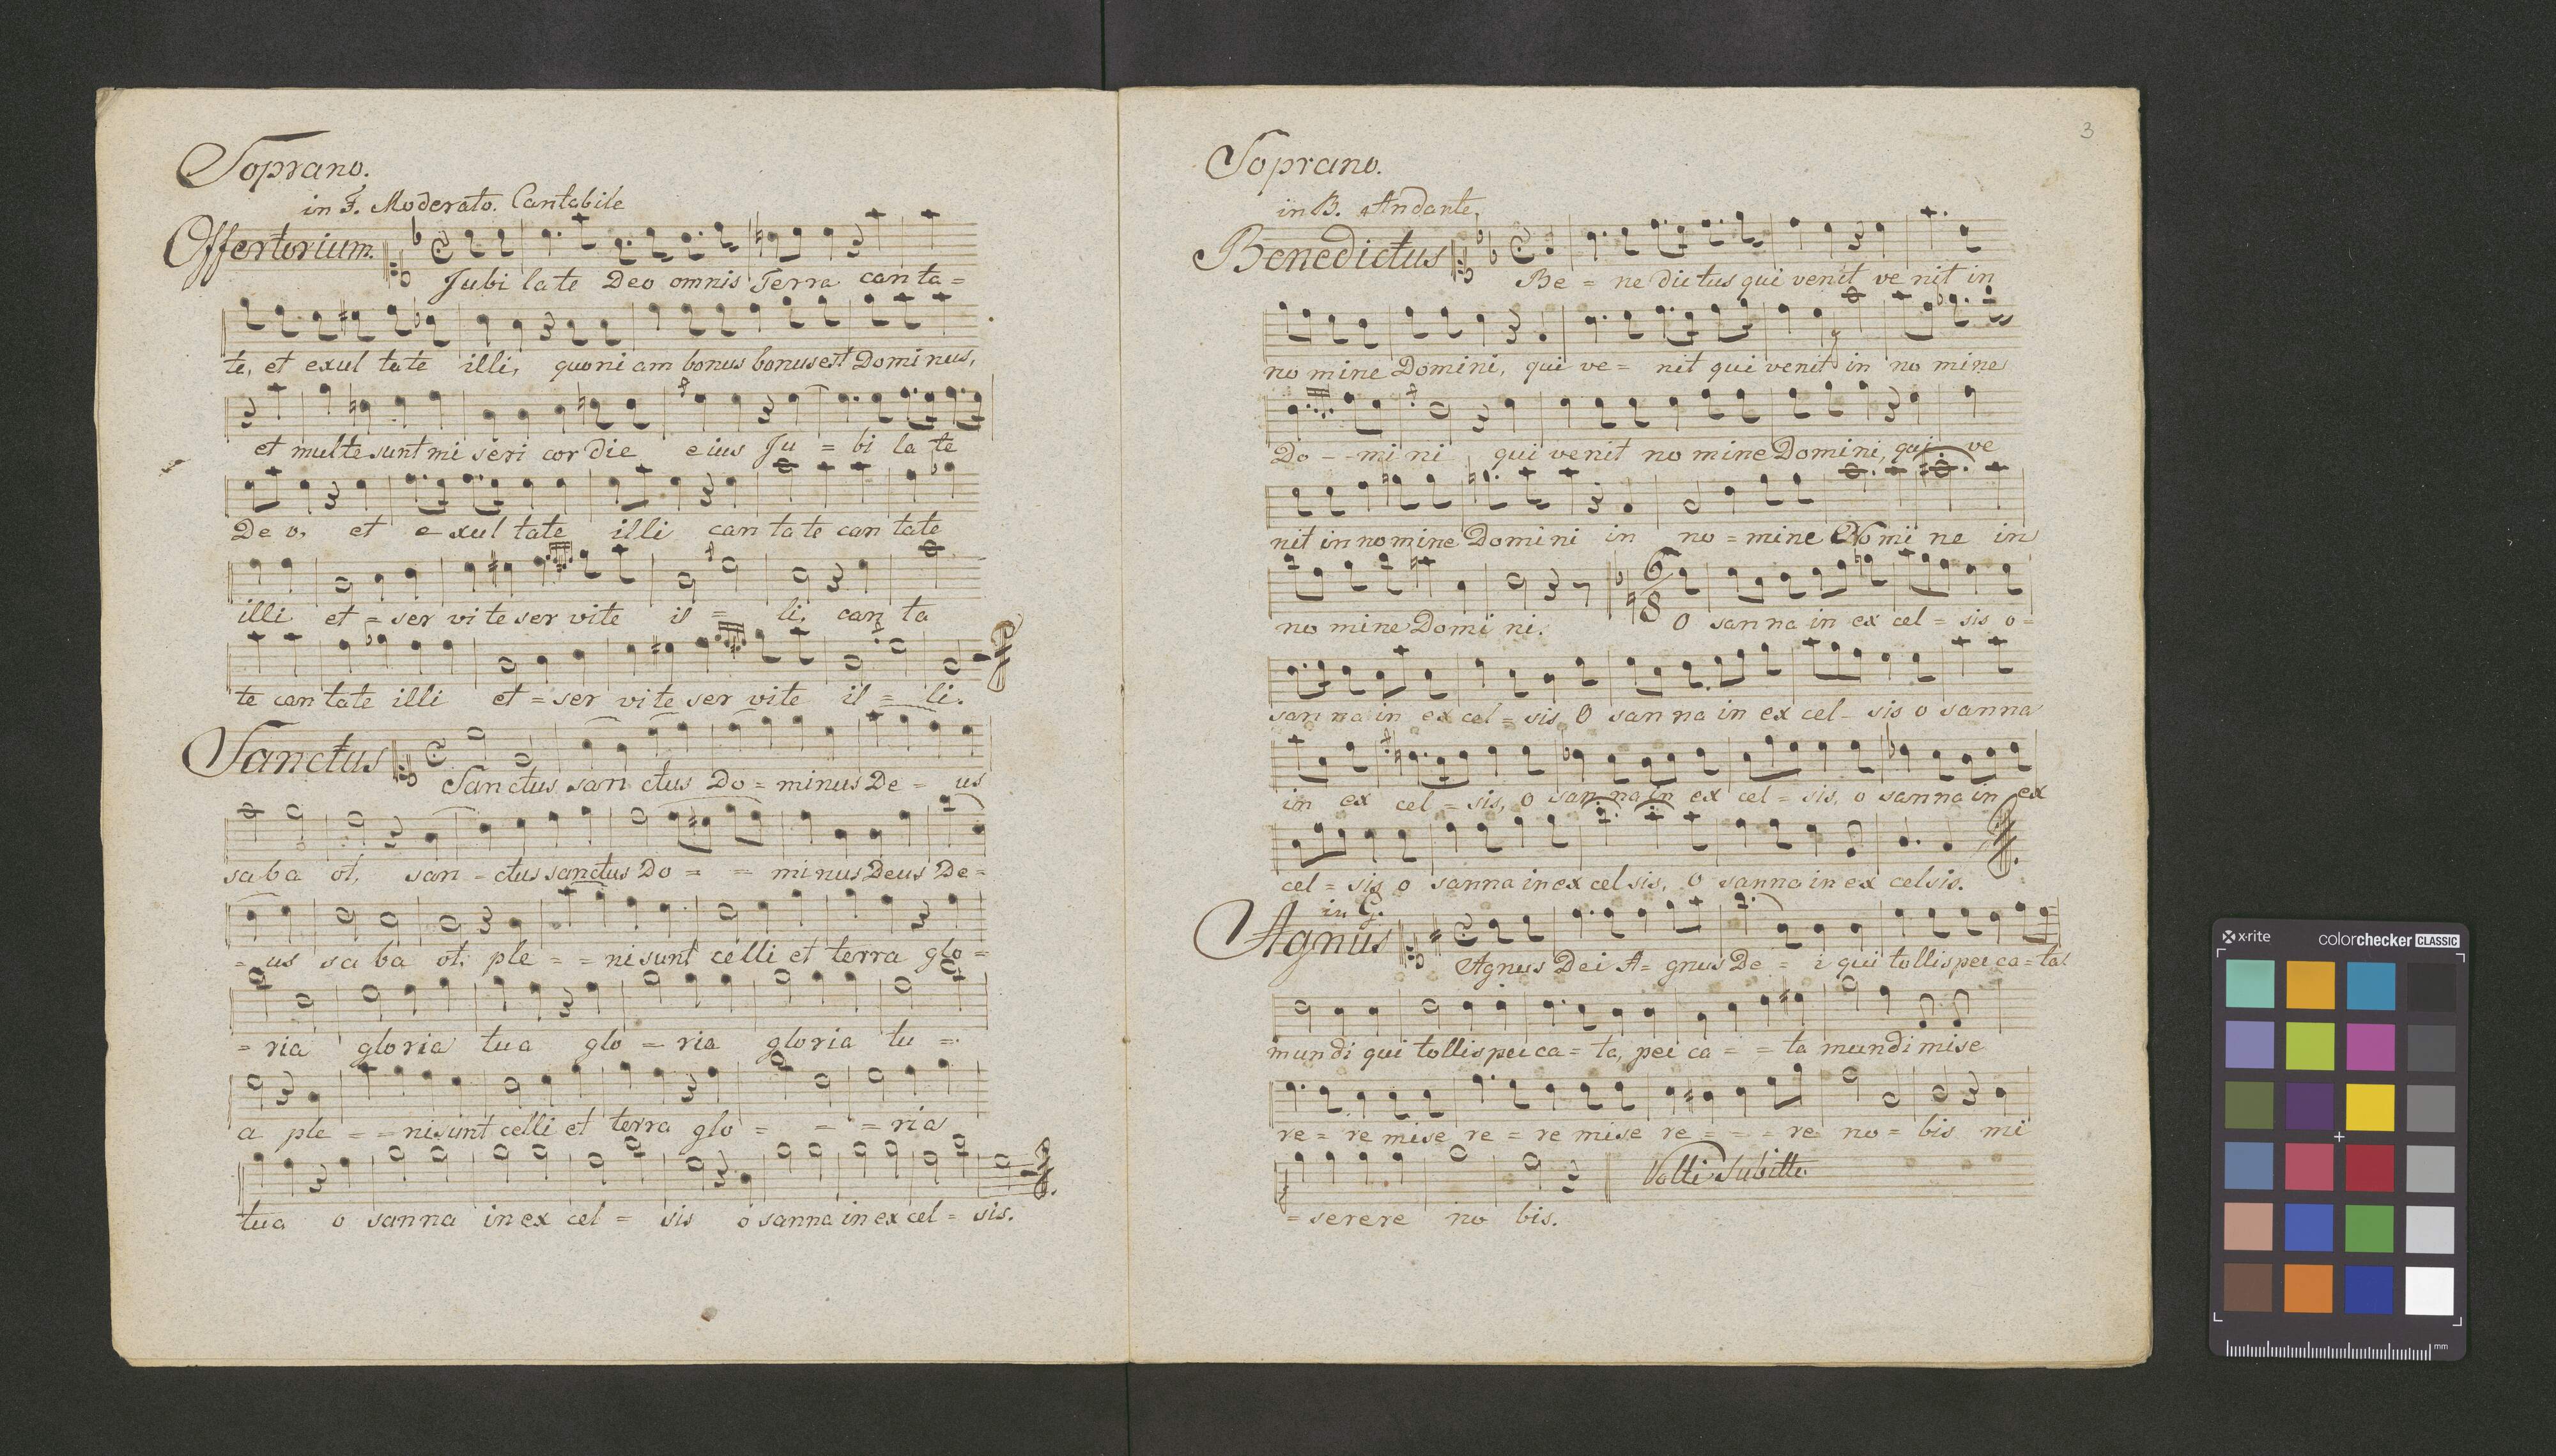 Soprano.
in F. Moderato. Cantabile
Offertorium.
Jubi la te Deo omnis Terra can ta =
te, et exul tate illi, quoni am bonus bonus est Dominus,
et multe sunt mi seri cor die eius Ju = bi la te
De o, et e xul tate illi can ta te can tate
illi et = ser vi te ser vite il = li, can ta
te can tate illi et = ser vi te ser vite il = li.
Sanctus
Sanctus san ctus Do = minus De = us
sa ba ot, san = ctus sanctus Do = = minus Deus De =
= us sa ba ot. ple = = ni sunt celli et terra glo =
= ria gloria tua glo = ria gloria tu =
a ple = = ni sunt celli et terra glo = = = ria
tua o sanna in ex cel = sis o sanna in ex cel = sis.
3
Soprano.
in B. Andante.
Benedictus
Be = ne dictus qui venit ve nit in
no mine Domini, qui ve = nit qui venit in no mine
Do - - mi ni qui venit no mine Domini, qui ve
nit in no mine Domini in no = mine No mi ne in
no mine Domi ni.
6
8
O san na in ex cel = sis o =
san na in ex cel = sis O san na in ex cel - sis o sanna
in ex cel = sis, o san na in ex cel = sis, o sanna in ex
cel = sis o sanna in ex cel sis, O sanna in ex celsis.
in G.
Agnus
Agnus Dei A = gnus De = i qui tollis pec ca = ta
mundi qui tollis pec ca = ta, pec ca = = ta mundi mise
re = re mise re = re mise re = = = re no = bis mi
= serere no bis.
Volti Subitto
x-rite
colorchecker CLASSIC
mm